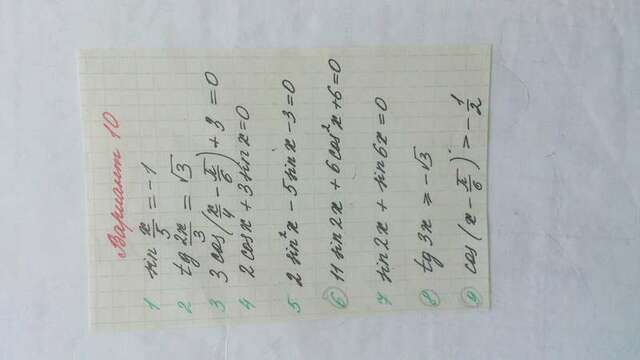 Вариант 10
1 sin x/5 = -1
2 tg 2x/3 = √3
3 3 cos(x/4 - π/6) + 3 = 0
4 2 cos x + 3 sin x = 0
5 2 sin²x - 5 sin x - 3 = 0
6 11 sin 2x + 6 cos²x + 6 = 0
7 sin 2x + sin 6x = 0
8 tg 3x ≥ -√3
9 cos(x - π/6) > -1/2